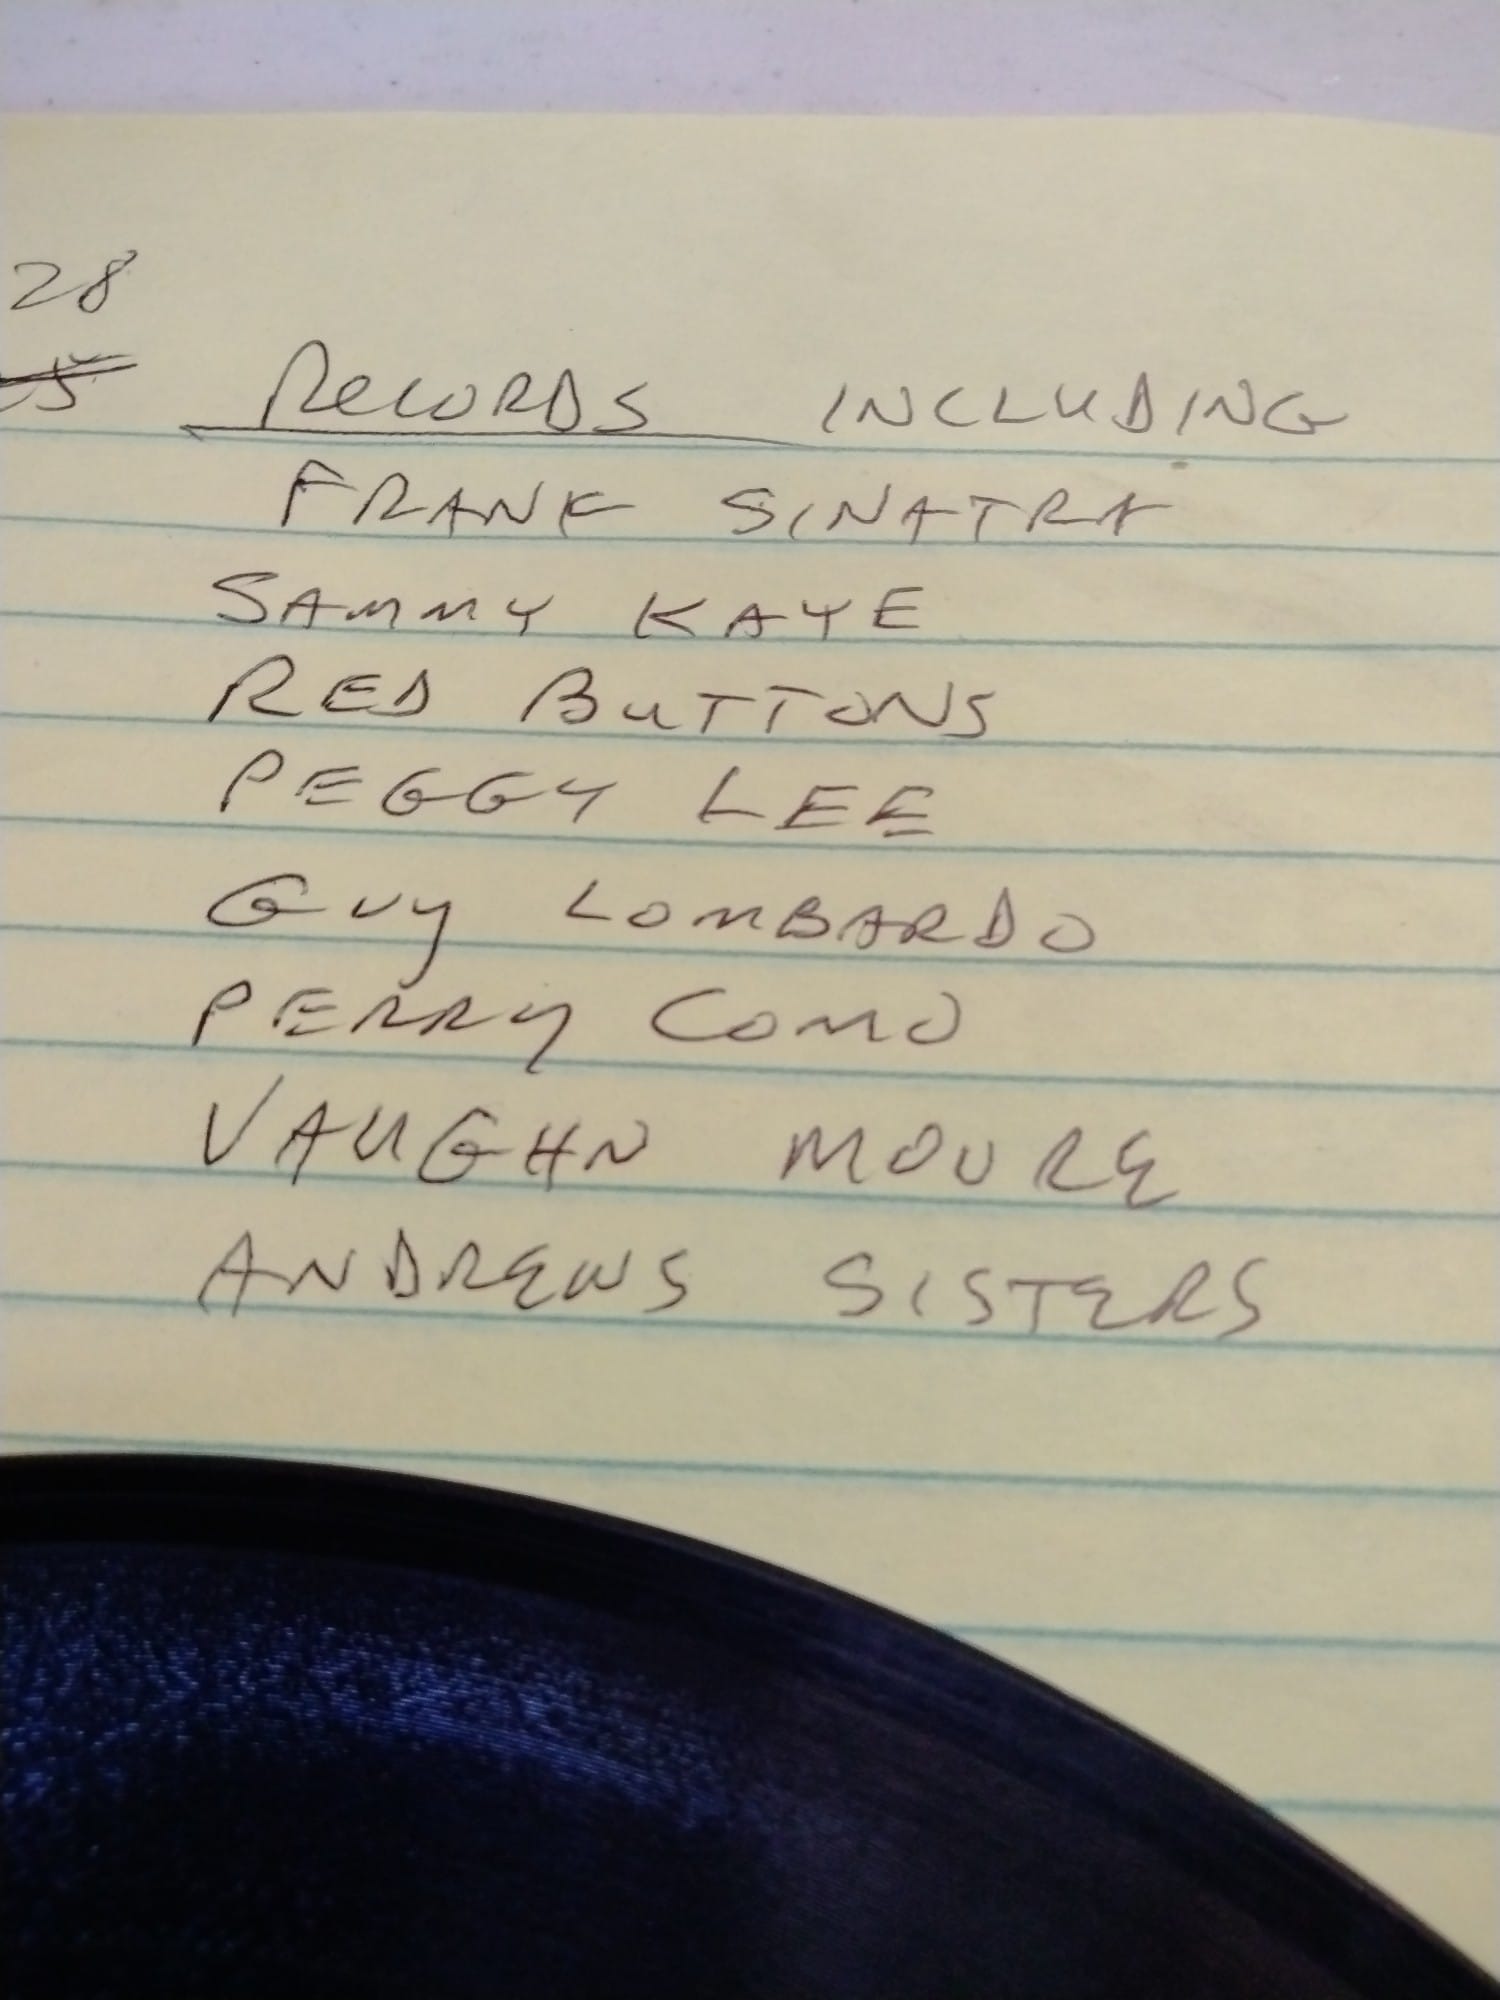 28
RECORDS INCLUDING
FRANK SINATRA
SAMMY KAYE
RED BUTTONS
PEGGY LEE
GUY LOMBARDO
PERRY COMO
VAUGHN MOORE
ANDREWS SISTERS